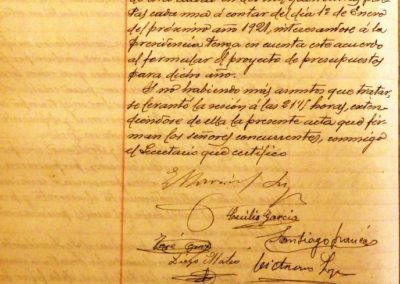 tas cada una á contar del día 1º de Enero
del próximo año 1921, interesandose á la
presidencia tenga en cuenta este acuerdo
al formular el proyecto de presupuestos
para dicho año.
Y no habiendo más asuntos que tratar,
se levantó la sesión á las 21½ horas, exten-
diendose de ella la presente acta que fir-
man los señores concurrentes, conmigo
el Secretario que certifico
Cecilio García
José
Santiago
Diego Mateo